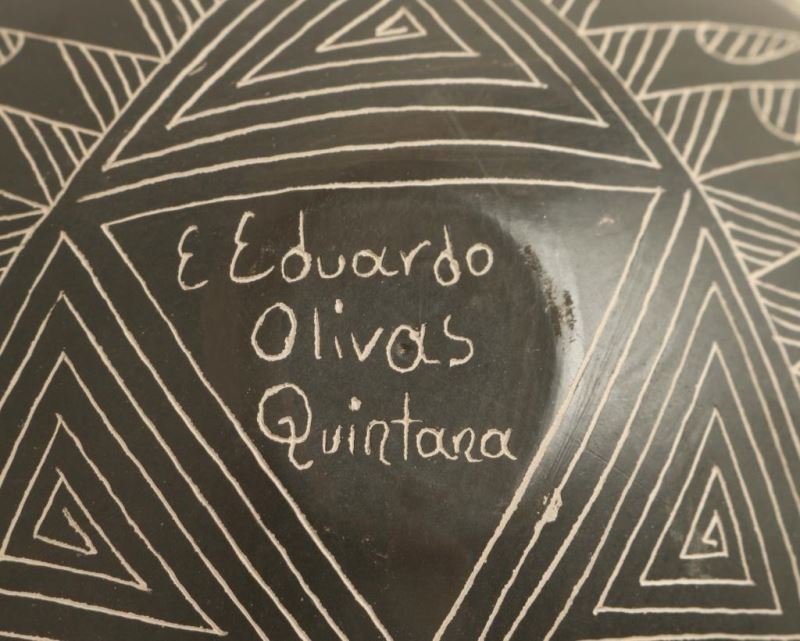 E Eduardo
Olivas
Quintana